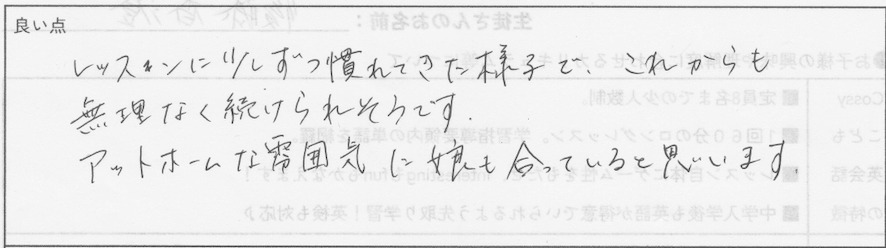 良い点
レッスンに少しずつ慣れてきた様子で、これからも
無理なく続けられそうです.
アットホームな雰囲気に娘も合っていると思います